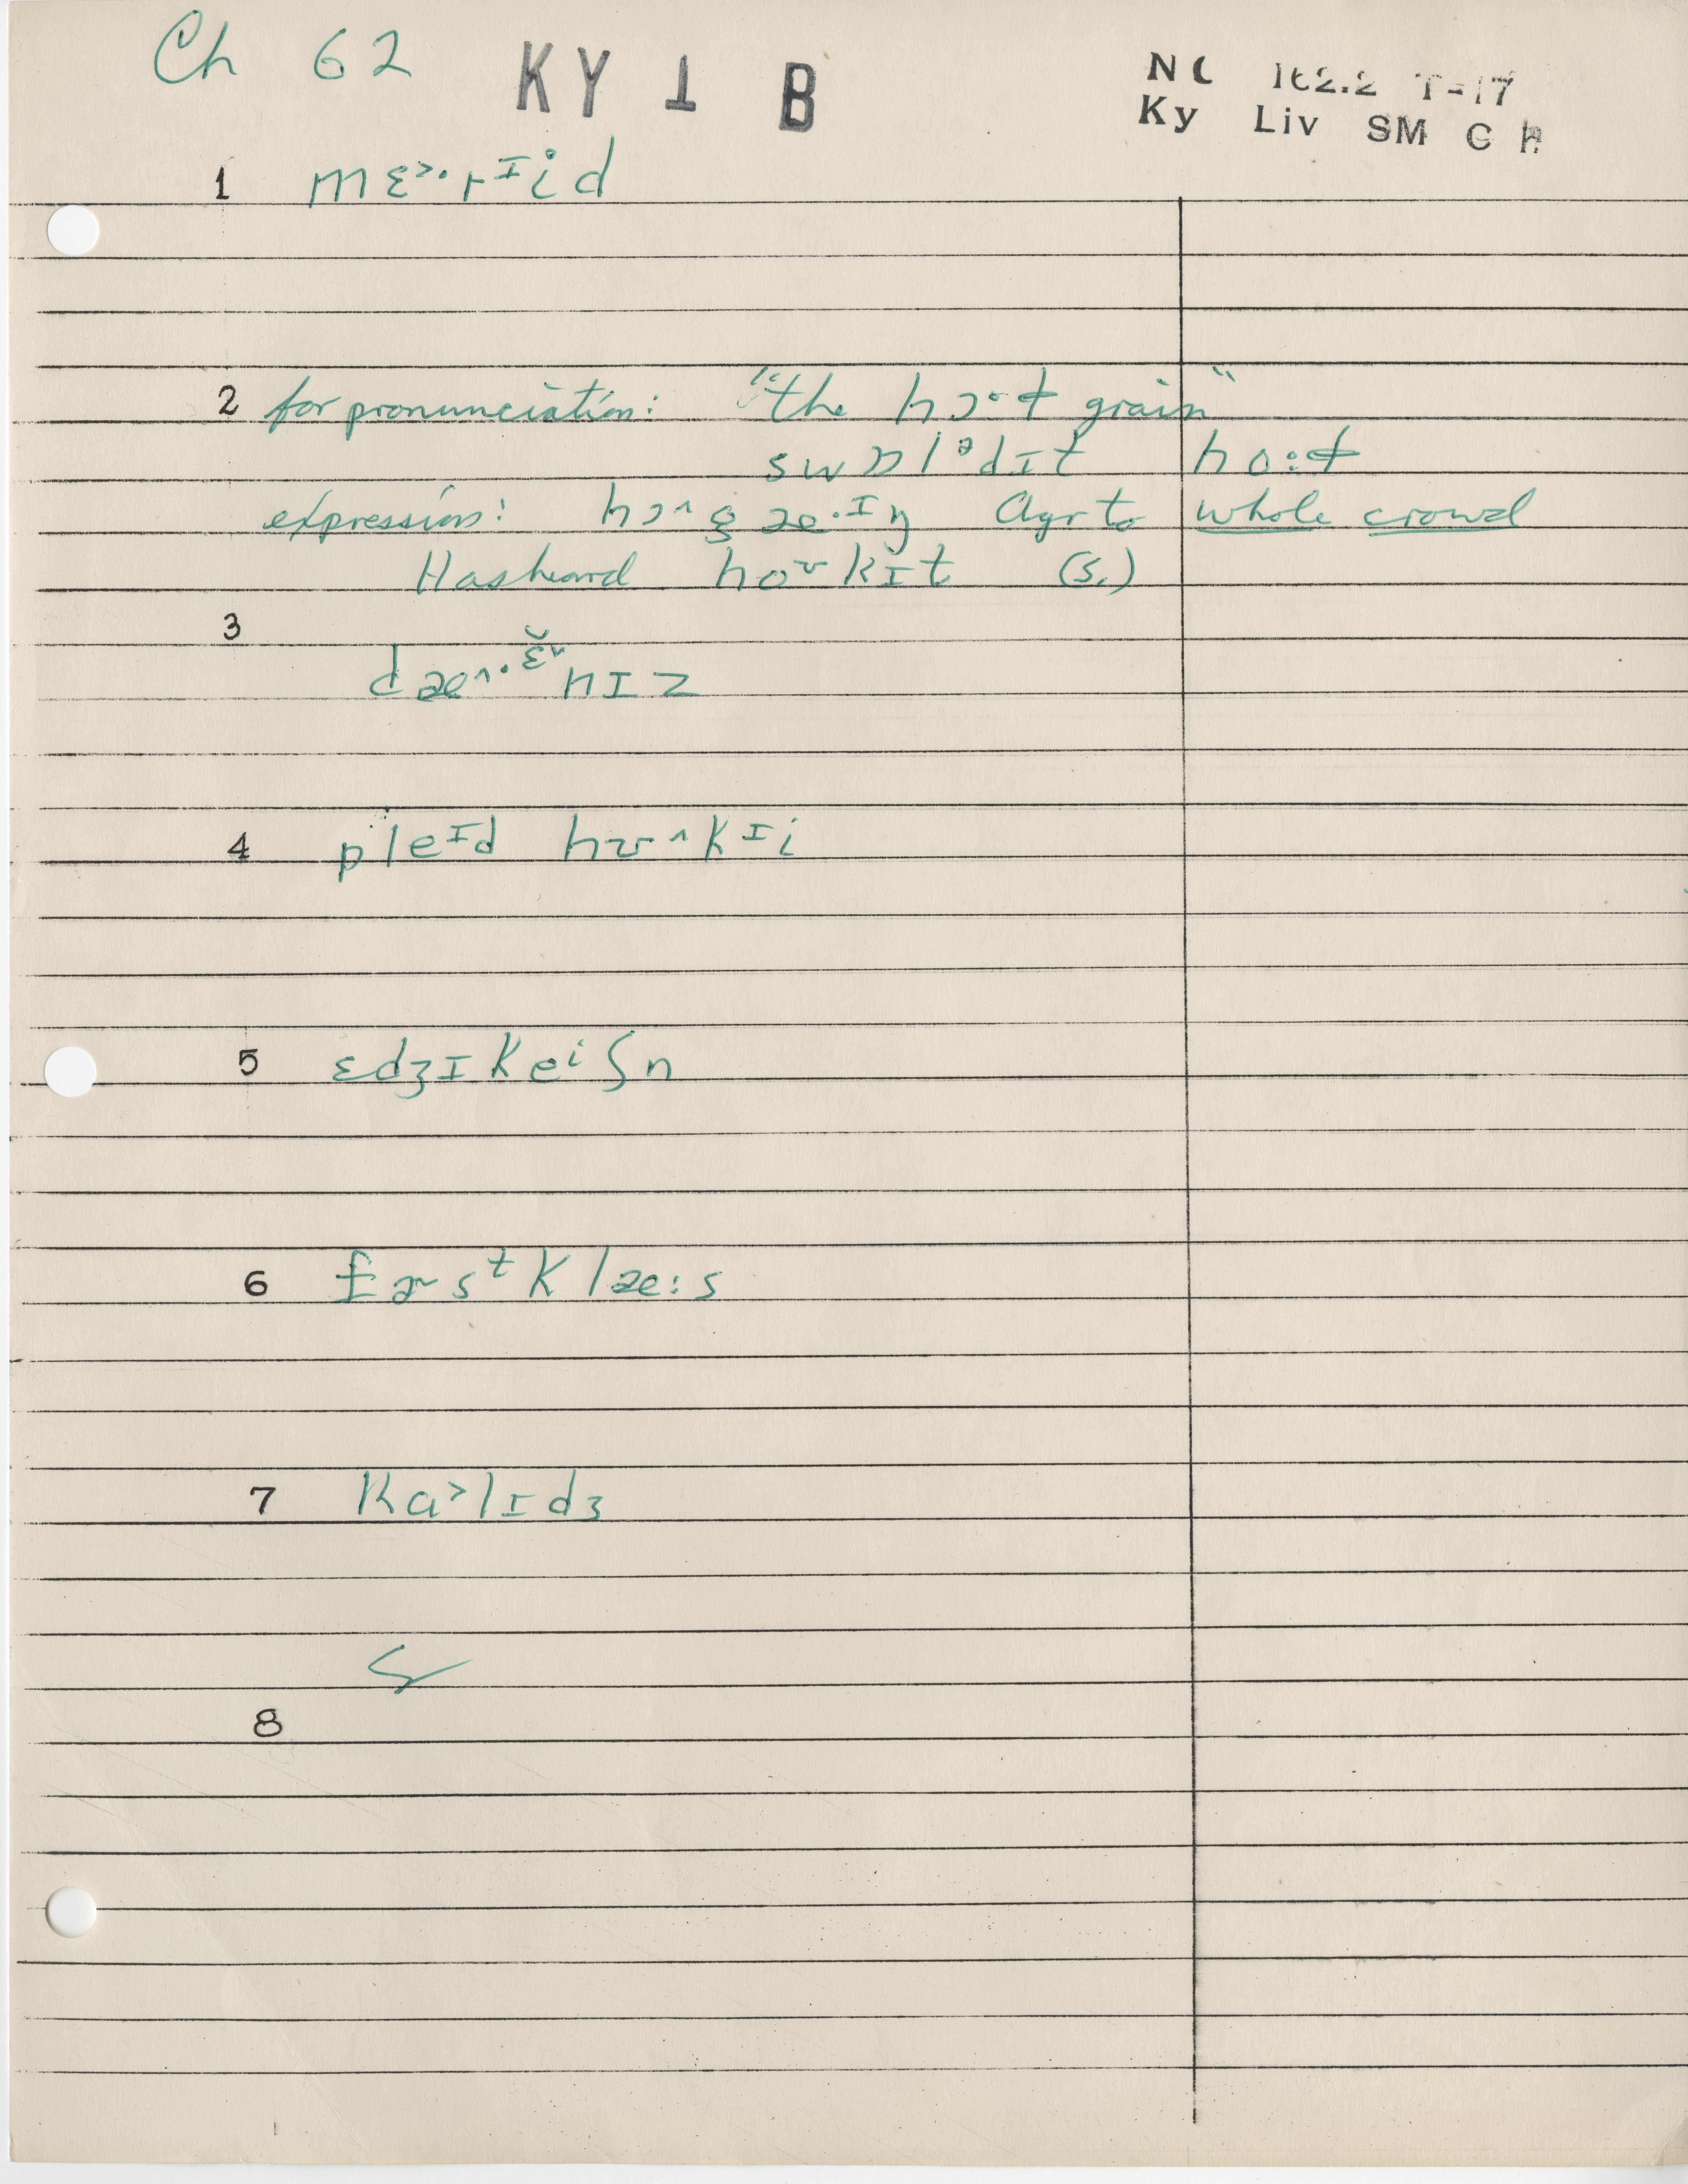 Ch 62 KY 1 B
NC 162.2 T-17
Ky Liv SM C H
1 mɛ˃·rᴵid
2 for pronunciation: "the hɔ·ɫ grain"
swɒlᵊdɪt ho:ɫ
expression: hɔ˄g æ·ᴵŋ Agr to whole crowd
Has heard ho˅kɪt (s.)
3
dæ˄·ɛ̆˅nɪz
4 pleᴵd hʊ˄kᴵi
5 ɛdʒɪkeⁱʃn
6 fɚsᵗklæ:s
7 kɑ˃lɪdʒ
8